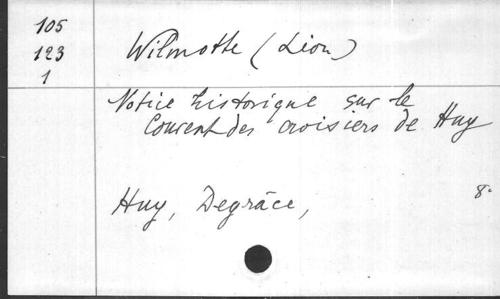 105
123
1
Wilmotte (Léon)
Notice historique sur le
Couvent des croisiers de Huy
Huy, Degrâce,
8°